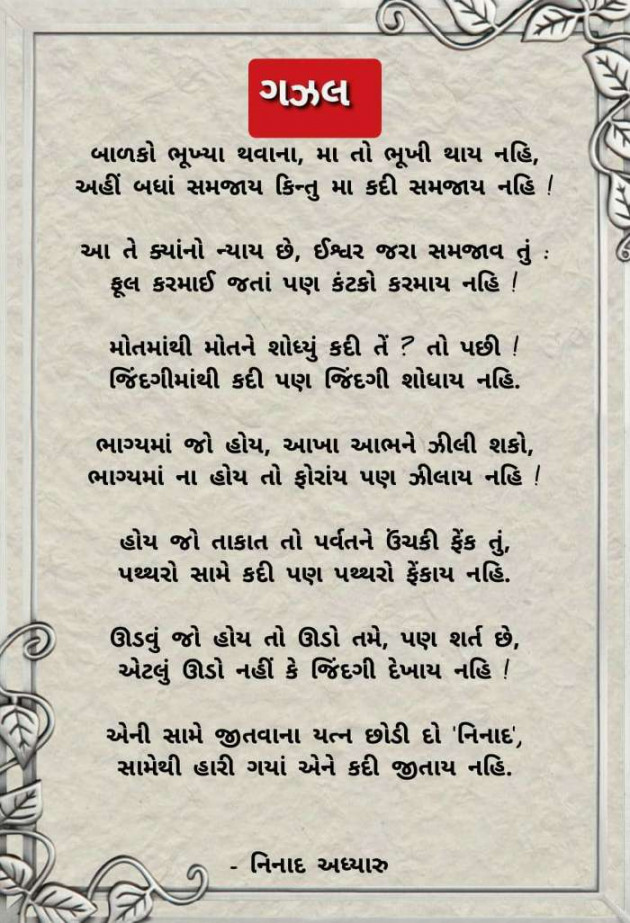 ગઝલ
બાળકો ભૂખ્યા થવાના, મા તો ભૂખી થાય નહિ,
અહીં બધાં સમજાય કિન્તુ મા કદી સમજાય નહિ !
આ તે ક્યાંનો ન્યાય છે, ઈશ્વર જરા સમજાવ તું :
ફૂલ કરમાઈ જતાં પણ કંટકો કરમાય નહિ !
મોતમાંથી મોતને શોધ્યું કદી તેં ? તો પછી !
જિંદગીમાંથી કદી પણ જિંદગી શોધાય નહિ.
ભાગ્યમાં જો હોય, આખા આભને ઝીલી શકો,
ભાગ્યમાં ના હોય તો ફોરાંય પણ ઝીલાય નહિ !
હોય જો તાકાત તો પર્વતને ઉંચકી ફેંક તું,
પથ્થરો સામે કદી પણ પથ્થરો ફેંકાય નહિ.
ઊડવું જો હોય તો ઊડો તમે, પણ શર્ત છે,
એટલું ઊડો નહીં કે જિંદગી દેખાય નહિ !
એની સામે જીતવાના યત્ન છોડી દો 'નિનાદ',
સામેથી હારી ગયાં એને કદી જીતાય નહિ.
- નિનાદ અધ્યારુ